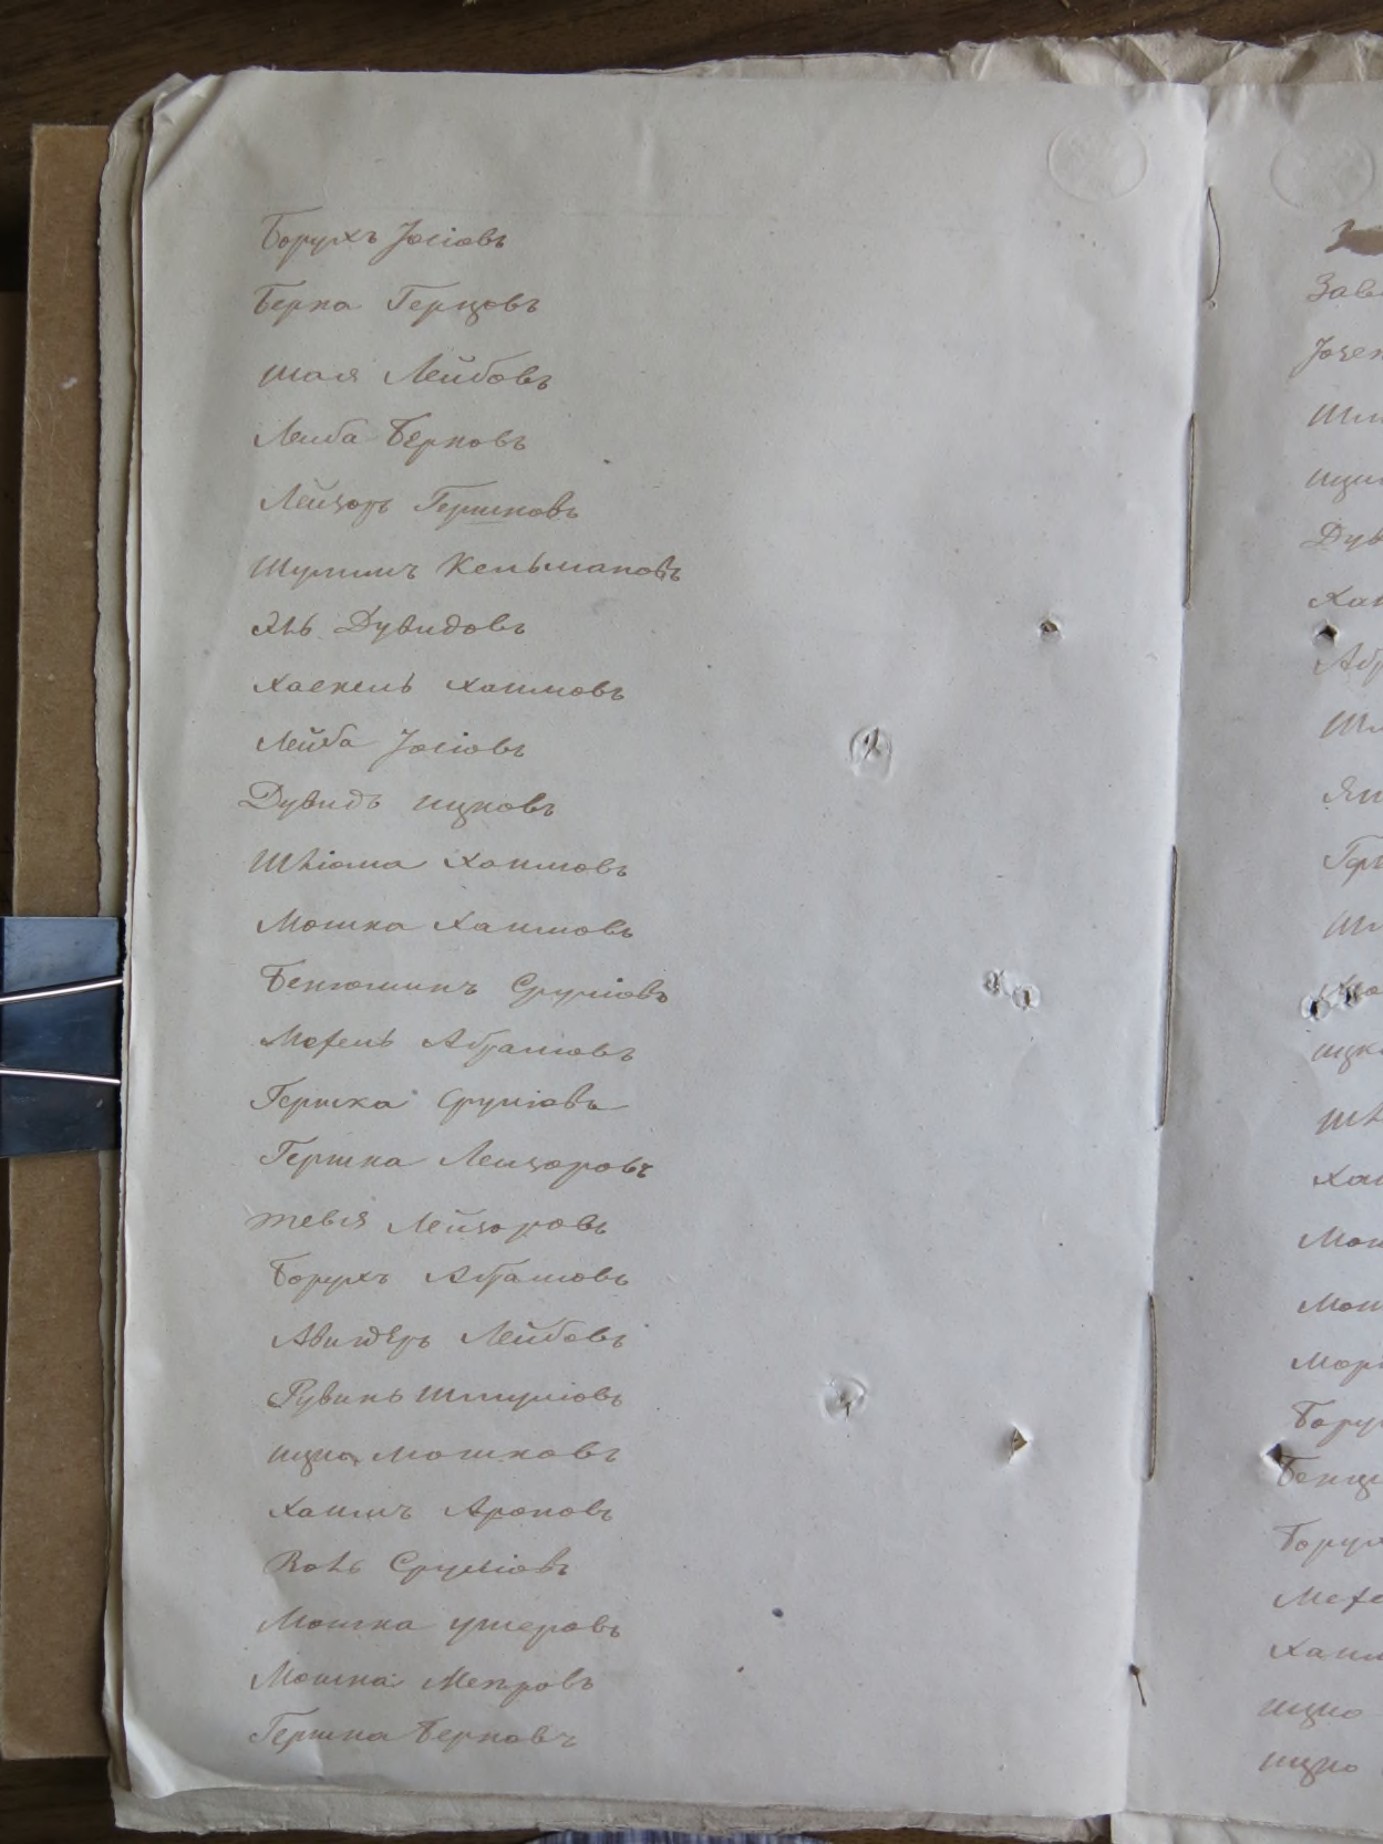 Борухъ Іосіовъ
Берка Герцовъ
шая Лейбовъ
Леиба Берковъ
Лейзоръ Гершковъ
Шулимъ Кельмановъ
Эль Дувидовъ
Хаскель Хаимовъ
Лейба Іосіовъ
Дувидъ ицковъ
Шліома Хаимовъ
Мошка Хаимовъ
Бенюминъ Сруліовъ
Мехель Абрамовъ
Гершка Сруліовъ
Гершка Леизоровъ
тевія Лейзоровъ
Борухъ Абрамовъ
Авигдеръ Лейбовъ
Рувинь Шмуліовъ
ицко мошковъ
Хаимъ Ароновъ
Волъ Сруліовъ
Мошка ушеровъ
Мошка Меировъ
Гершка Берковъ
Іозе
Дув
Хаи
Абр
Мош
Мош
Бору
Бенц
Борух
Мехе
Хаим
ицко
ицко